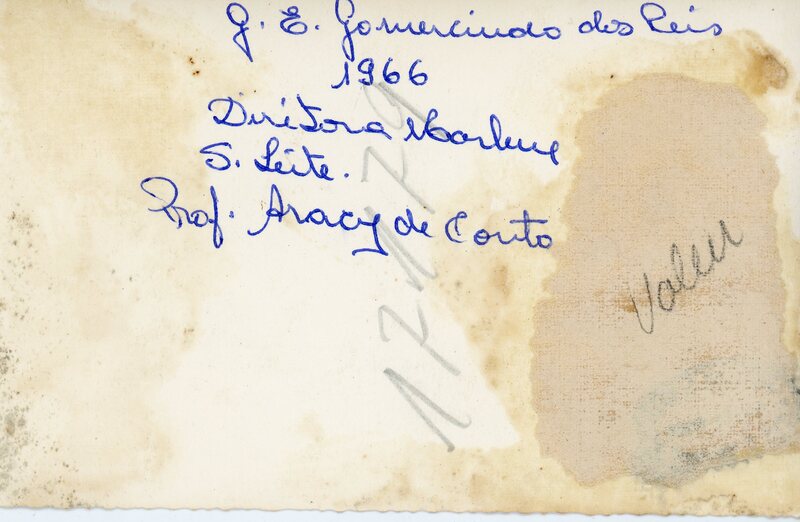 G. E. Gomercindo dos Reis
1966
Diritora Marlene
S. Leite.
Prof. Aracy de Conto